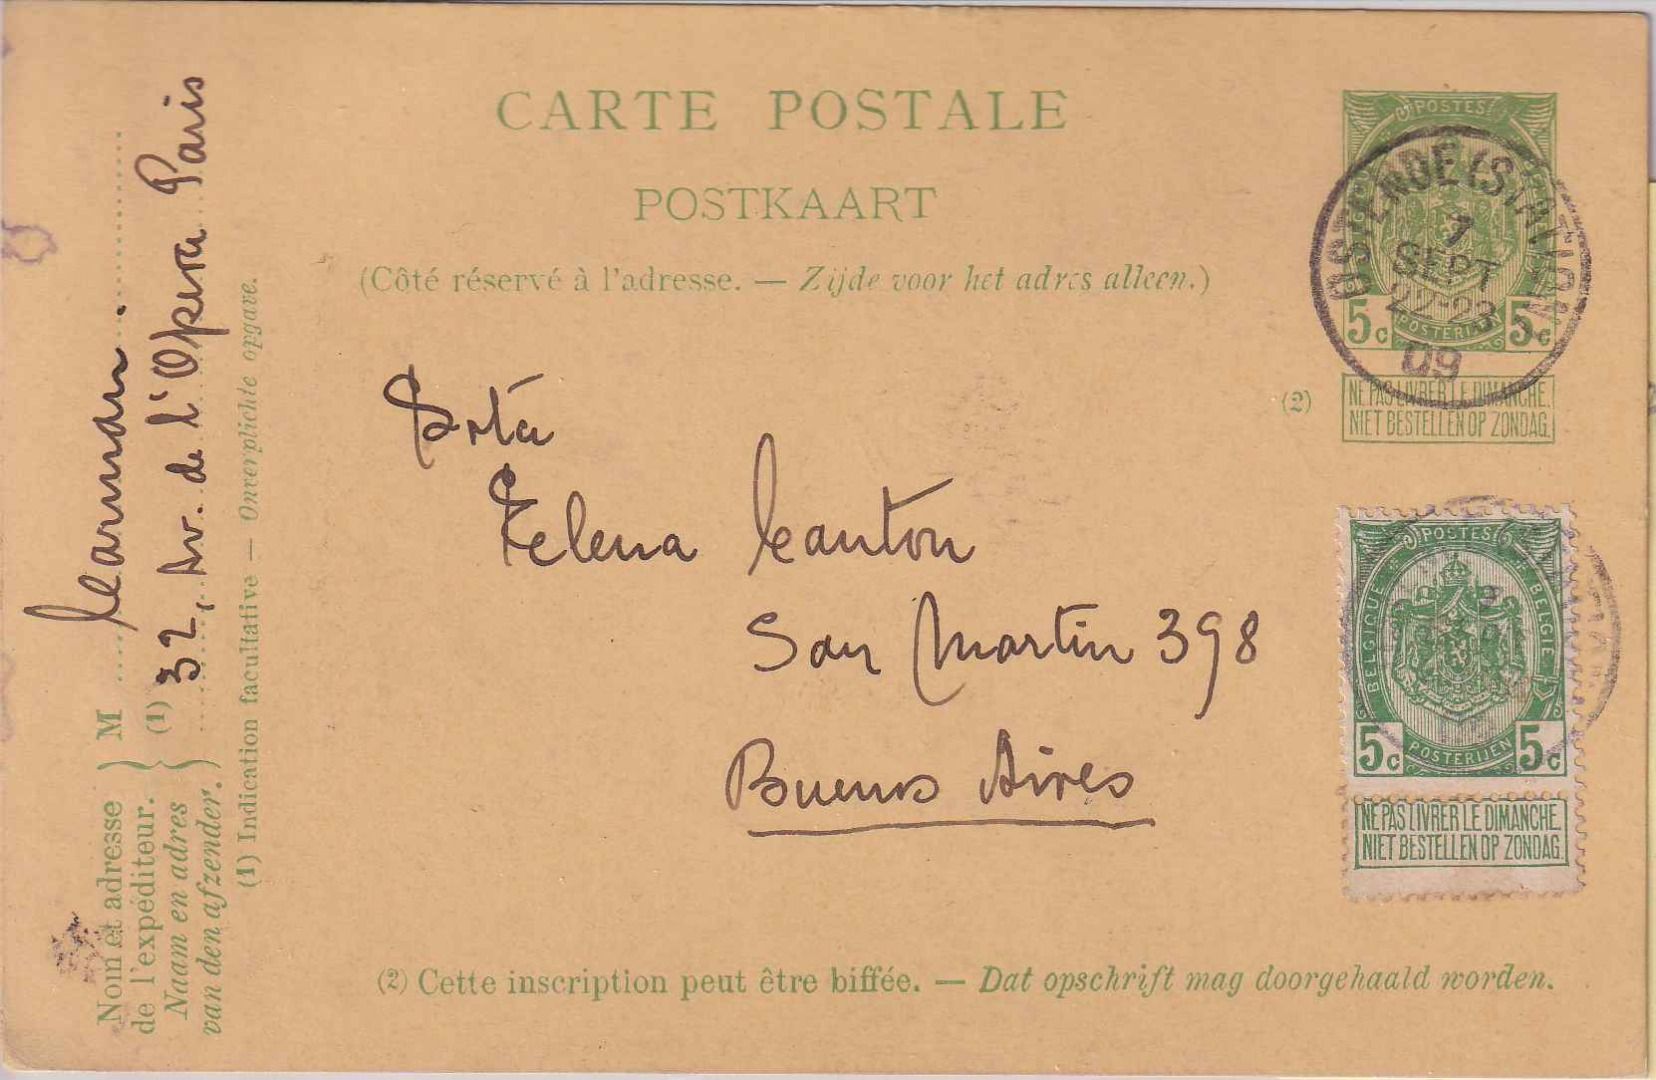 CARTE POSTALE
POSTKAART
(Côté réservé à l'adresse. — Zijde voor het adres alleen.)
POSTES
5c POSTERIJEN 5c
OSTENDE (STATION)
7
SEPT
22-23
09
(2)
NE PAS LIVRER LE DIMANCHE.
NIET BESTELLEN OP ZONDAG.
Srta
Felena Canton
San Martin 398
Buenos Aires
POSTES
BELGIQUE BELGIË
5c POSTERIJEN 5c
NE PAS LIVRER LE DIMANCHE.
NIET BESTELLEN OP ZONDAG.
(2) Cette inscription peut être biffée. — Dat opschrift mag doorgehaald worden.
Nom et adresse
de l'expéditeur.
Naam en adres
van den afzender.
M Carman.
(1) 32, Av. de l'Opera Paris
(1) Indication facultative — Onverplichte opgave.